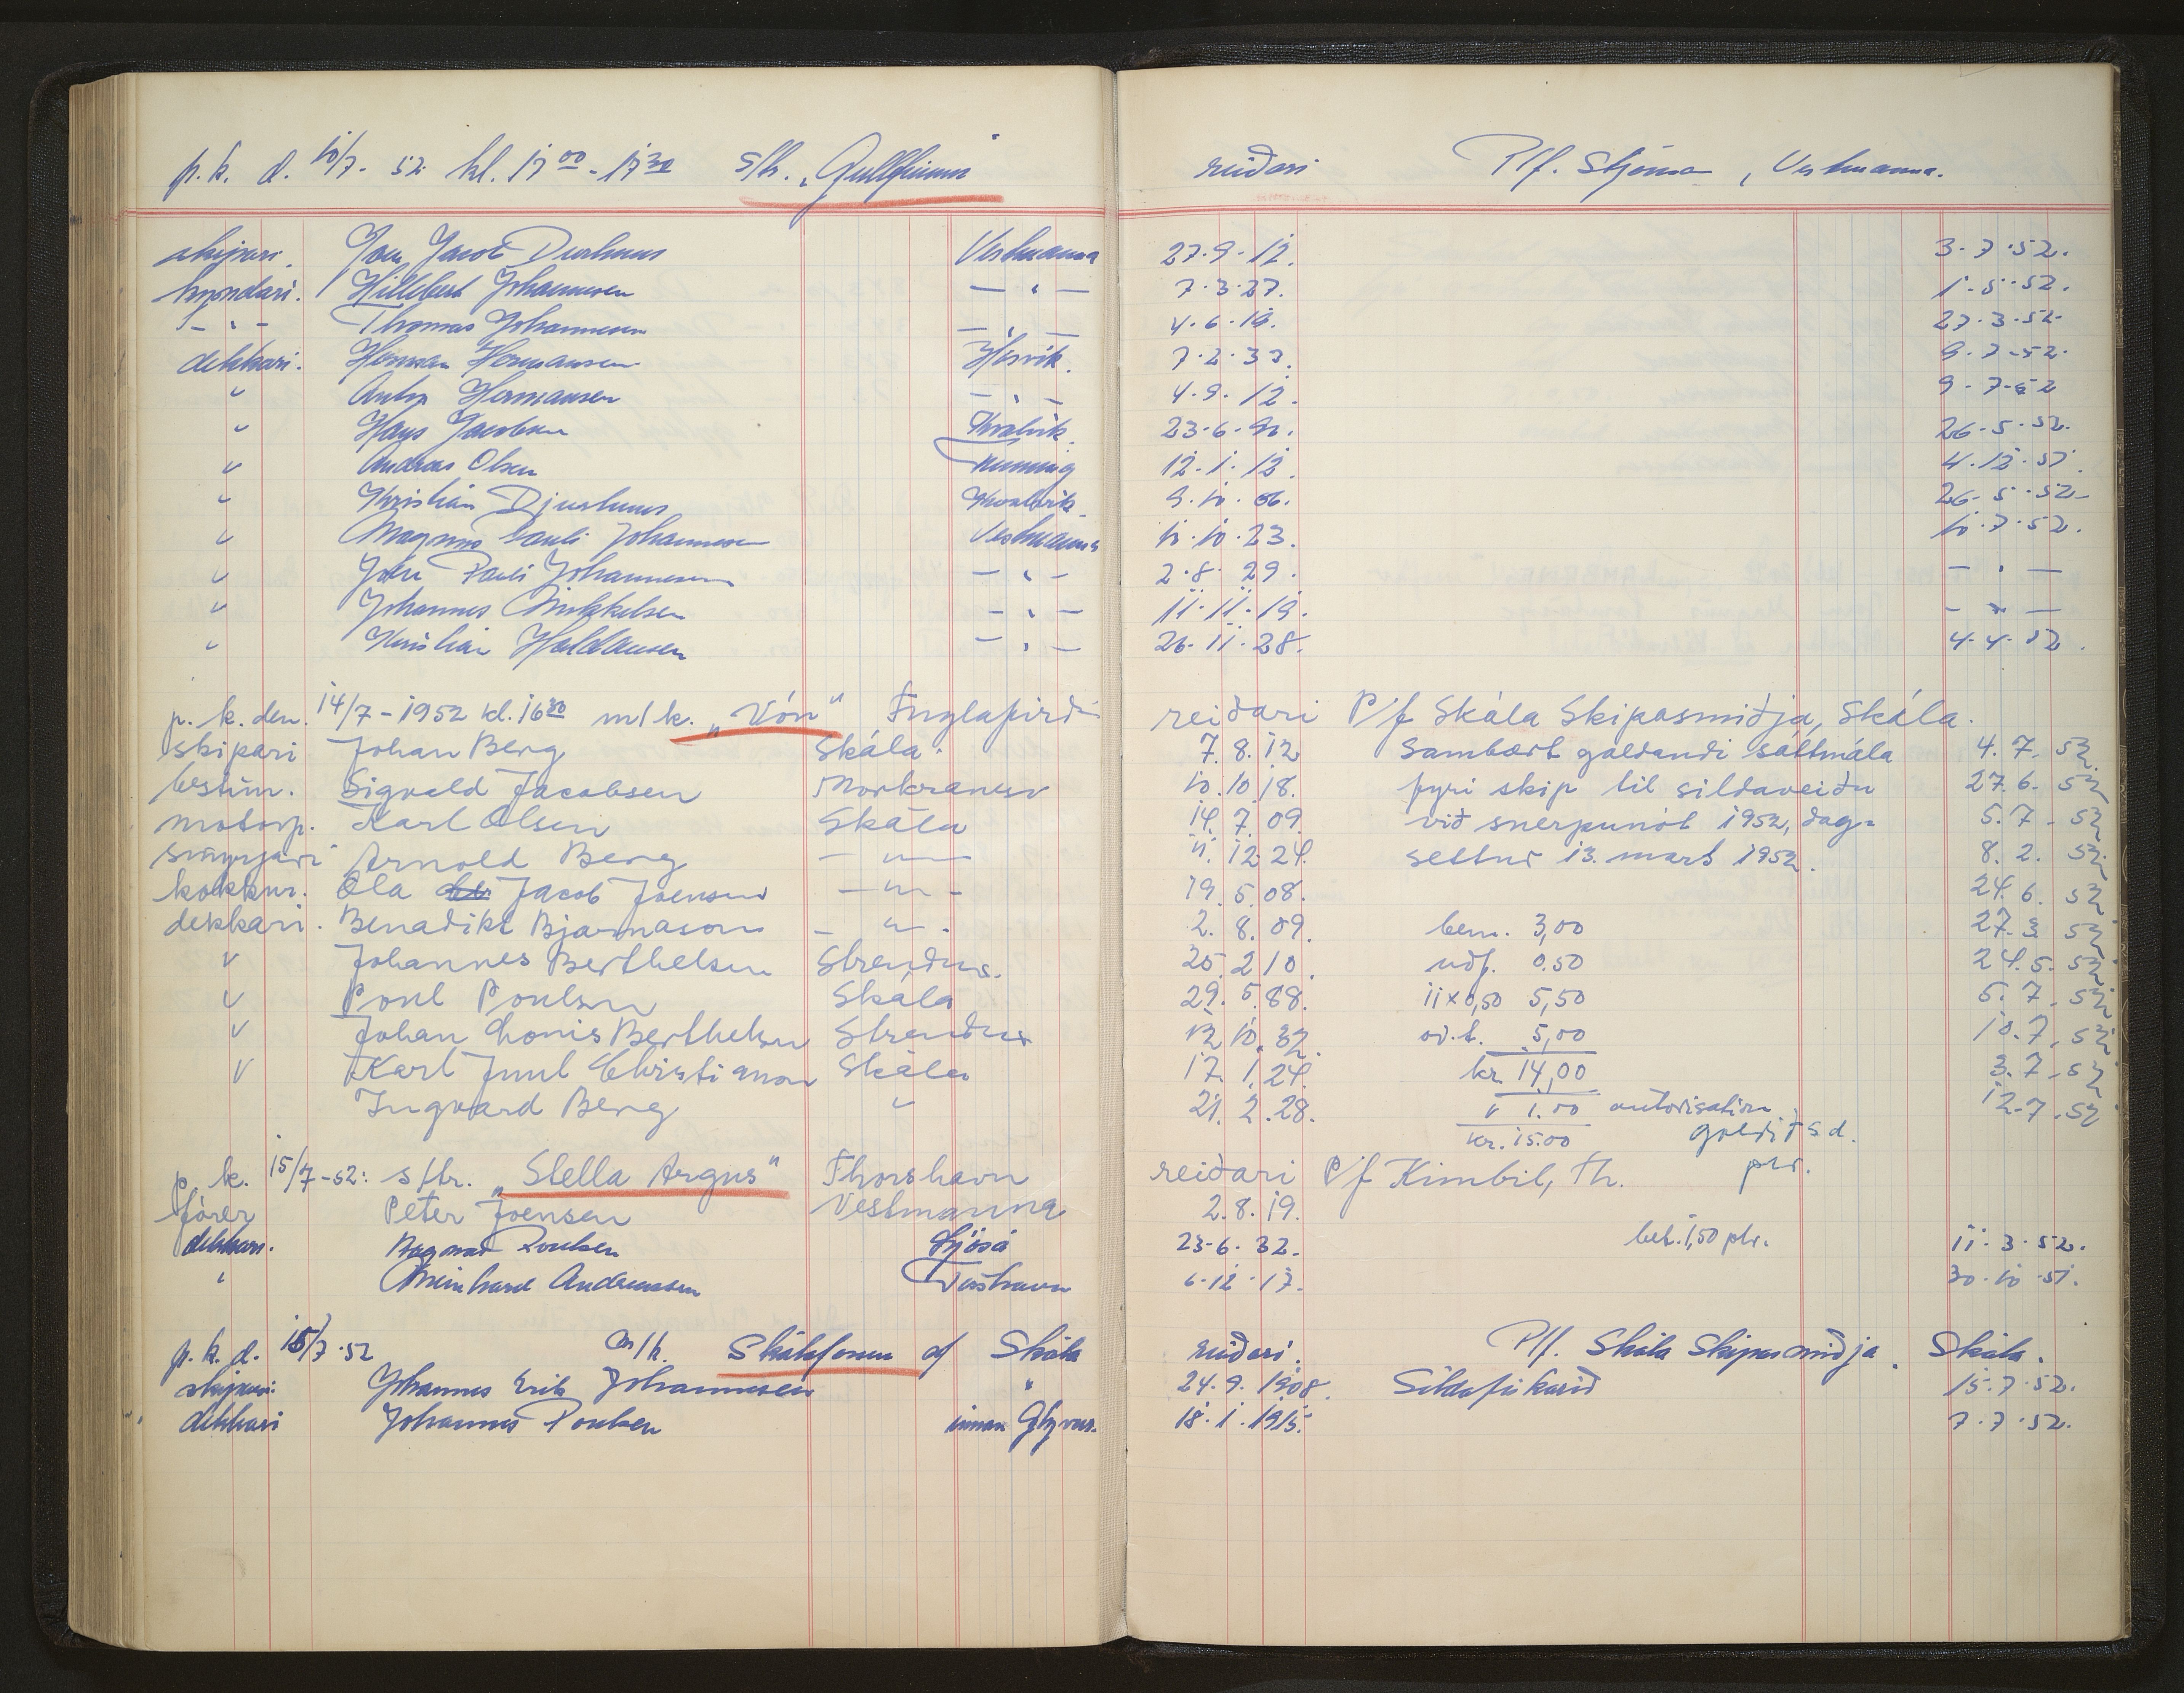 p.k. d. 10/7- 52 kl. 17 00 - 17 30 s/k. "Gullfinnur" reiðari P/f. Stjørna, Vestmanna.
skipari. Jacob Djurhuus Vestmanna 27.9.12. 3.7.52.
kyndari. Hillebert Johannesen — " — 7.3.27. 1.5.52.
- " - Thomas Johannesen — " — 4.6.19. 27.3.52.
dekkari. Herman Hermansen Hósvík. 7.2.33. 9.7.52.
" Anton Hermansen — " — 4.9.12. 9.7.52
" Hans Jacobsen Kvalvík. 23.6.90. 26.5.52.
" Andreas Olsen 12.1.12. 4.12.51.
" Kristian Djurhuus Kvalvík. 9.10.06. 26.5.52.
" Magnus Pauli Johannesen Vestmanna 10.10.23. 10.7.52.
" John Pauli Johannesen — " — 2.8.29. — " —
" Johannes Mikkelsen — " — 11.11.19. — " —
" Kristian Haldansen — " — 26.11.28. 4.4.52.
p. k. den. 14/7-1952 kl. 16 30 m/k. "Vón" Fuglafirði reiðari P/f Skála Skipasmiðja, Skála.
skipari Johan Berg Skála. 7.8.12 Sambært galdandi sáttmála 4.7.52.
bestm. Sigvald Jacobsen Morkranesi 10.10.18. fyri skip til sildaveiðu 27.6.52
motorp. Karl Olsen Skála 14.7.09. við snerpunót 1952, dag=
5.7.52
smyrjari Arnold Berg — " — 11.12.24. settur 13. mart 1952. 8.2.52.
kokkur. Ola Jacob Joensen — " — 19.5.08. 24.6.52
dekkari. Benadikt Bjarnason — " — 2.8.09. bem. 3,00 27.3.52
" Johannes Berthelsen Strendur. 25.2.10. udf. 0.50 24.5.52
" Poul Poulsen Skála 29.5.88. 11x0,50 5,50 5.7.52
" Johan Louis Berthelsen Strendur 12.10.32. ov.t. 5,00 10.7.52
" Karl Juul Christianson Skála 17.1.24. kr. 14,00 3.7.52
Ingvard Berg " 21.2.28. " 1.00 autorisation. 12.7.52
kr. 15.00 goldið s.d.
p. k. 15/7-52: s/tr. "Stella Argus" Thorshavn reiðari P/f Kimbil, Th. ptr.
fører Peter Joensen Vestmanna 2.8.19.
dekkari. Dagmar Poulsen Gjósá 23.6.32. bet. 1,50 ptr. 11.3.52.
" Meinhard Andreassen Tórshavn 6.12.17. 30.10.51.
p.k.d. 15/7.52 m/k. Skálafossur af Skála reiðari. P/f. Skála Skipasmiðja, Skála.
skipari Johannes Erik Johannesen " 24.9.1908. Sildafiskarið 15.7.52.
dekkari Johannes Poulsen innan Glyvur. 18.1.1915. 7.7.52.